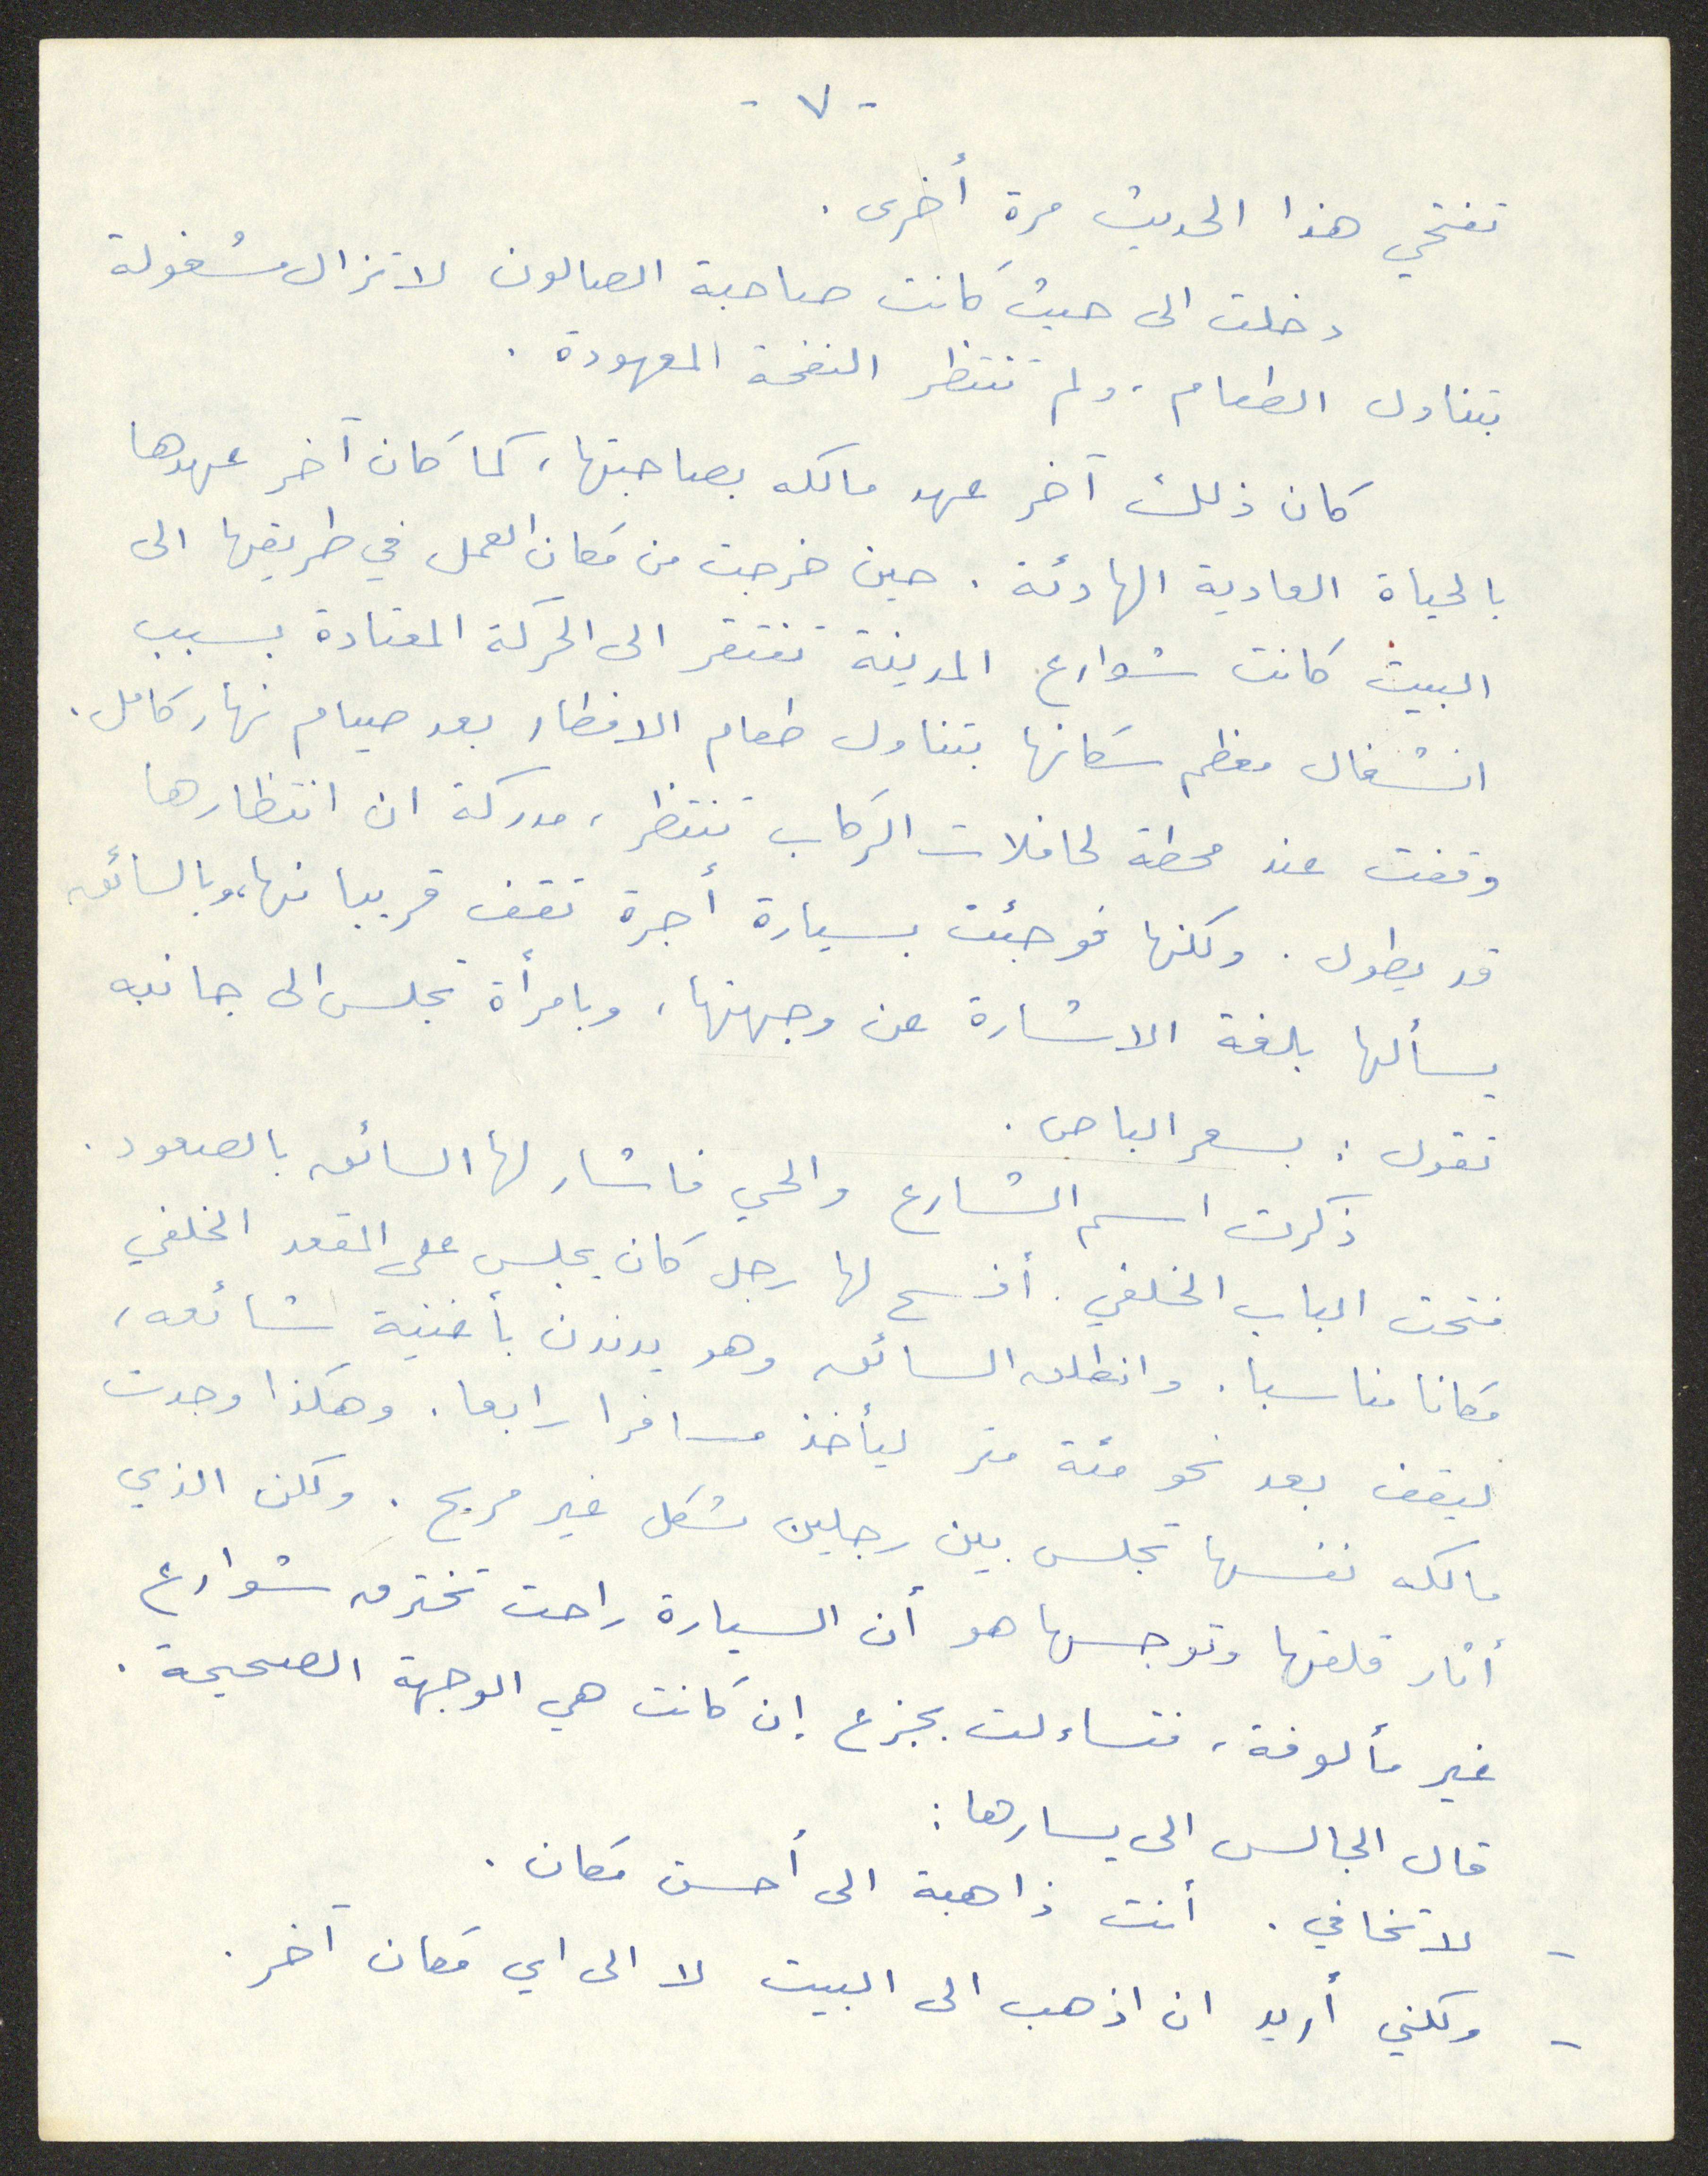 - ٧ -
تفتحي هذا الحديث مرة أخرى.
دخلت الى حيث كانت صاحبة الصالون لا تزال مشغولة
بتناول الطعام، ولم تنتظر النفحة المعهودة.
كان ذلك آخر عهد مالكه بصاحبتها، كما كان آخر عهدها
بالحياة العادية الهادئة. حين خرجت من مكان العمل في طريقها الى
البيت كانت شوارع المدينة تفتقر الى الحركة المعتادة بسبب
انشغال معظم سكانها بتناول طعام الافطار بعد صيام نهار كامل.
وقفت عند محطة لحافلات الركاب تنتظر، مدركة ان انتظارها
قد يطول. ولكنها فوجئت بسيارة أجرة تقف قريبا منها، وبالسائق
يسألها بلغة الاشارة عن وجهتها، وبامرأة تجلس الى جانبه
تقول: بسعر الباص.
ذكرت اسم الشارع والحي فاشار لها السائق بالصعود.
فتحت الباب الخلفي. أفسح لها رجل كان يجلس على المقعد الخلفي
مكانا مناسبا. وانطلق السائق وهو يدندن بأغنية شائعه،
ليقف بعد نحو مئة متر ليأخذ مسافرا رابعا. وهكذا وجدت
مالكه نفسها تجلس بين رجلين بشكل غير مريح. ولكن الذي
أثار قلقها وتوجسها هو أن السيارة راحت تخترق شوارع
غير مألوفة، فتساءلت بجزع إن كانت هي الوجهة الصحيحة.
قال الجالس الى يسارها:
- لا تخافي. أنت ذاهبة الى أحسن مكان.
- ولكني أريد ان اذهب الى البيت لا الى اي مكان آخر.